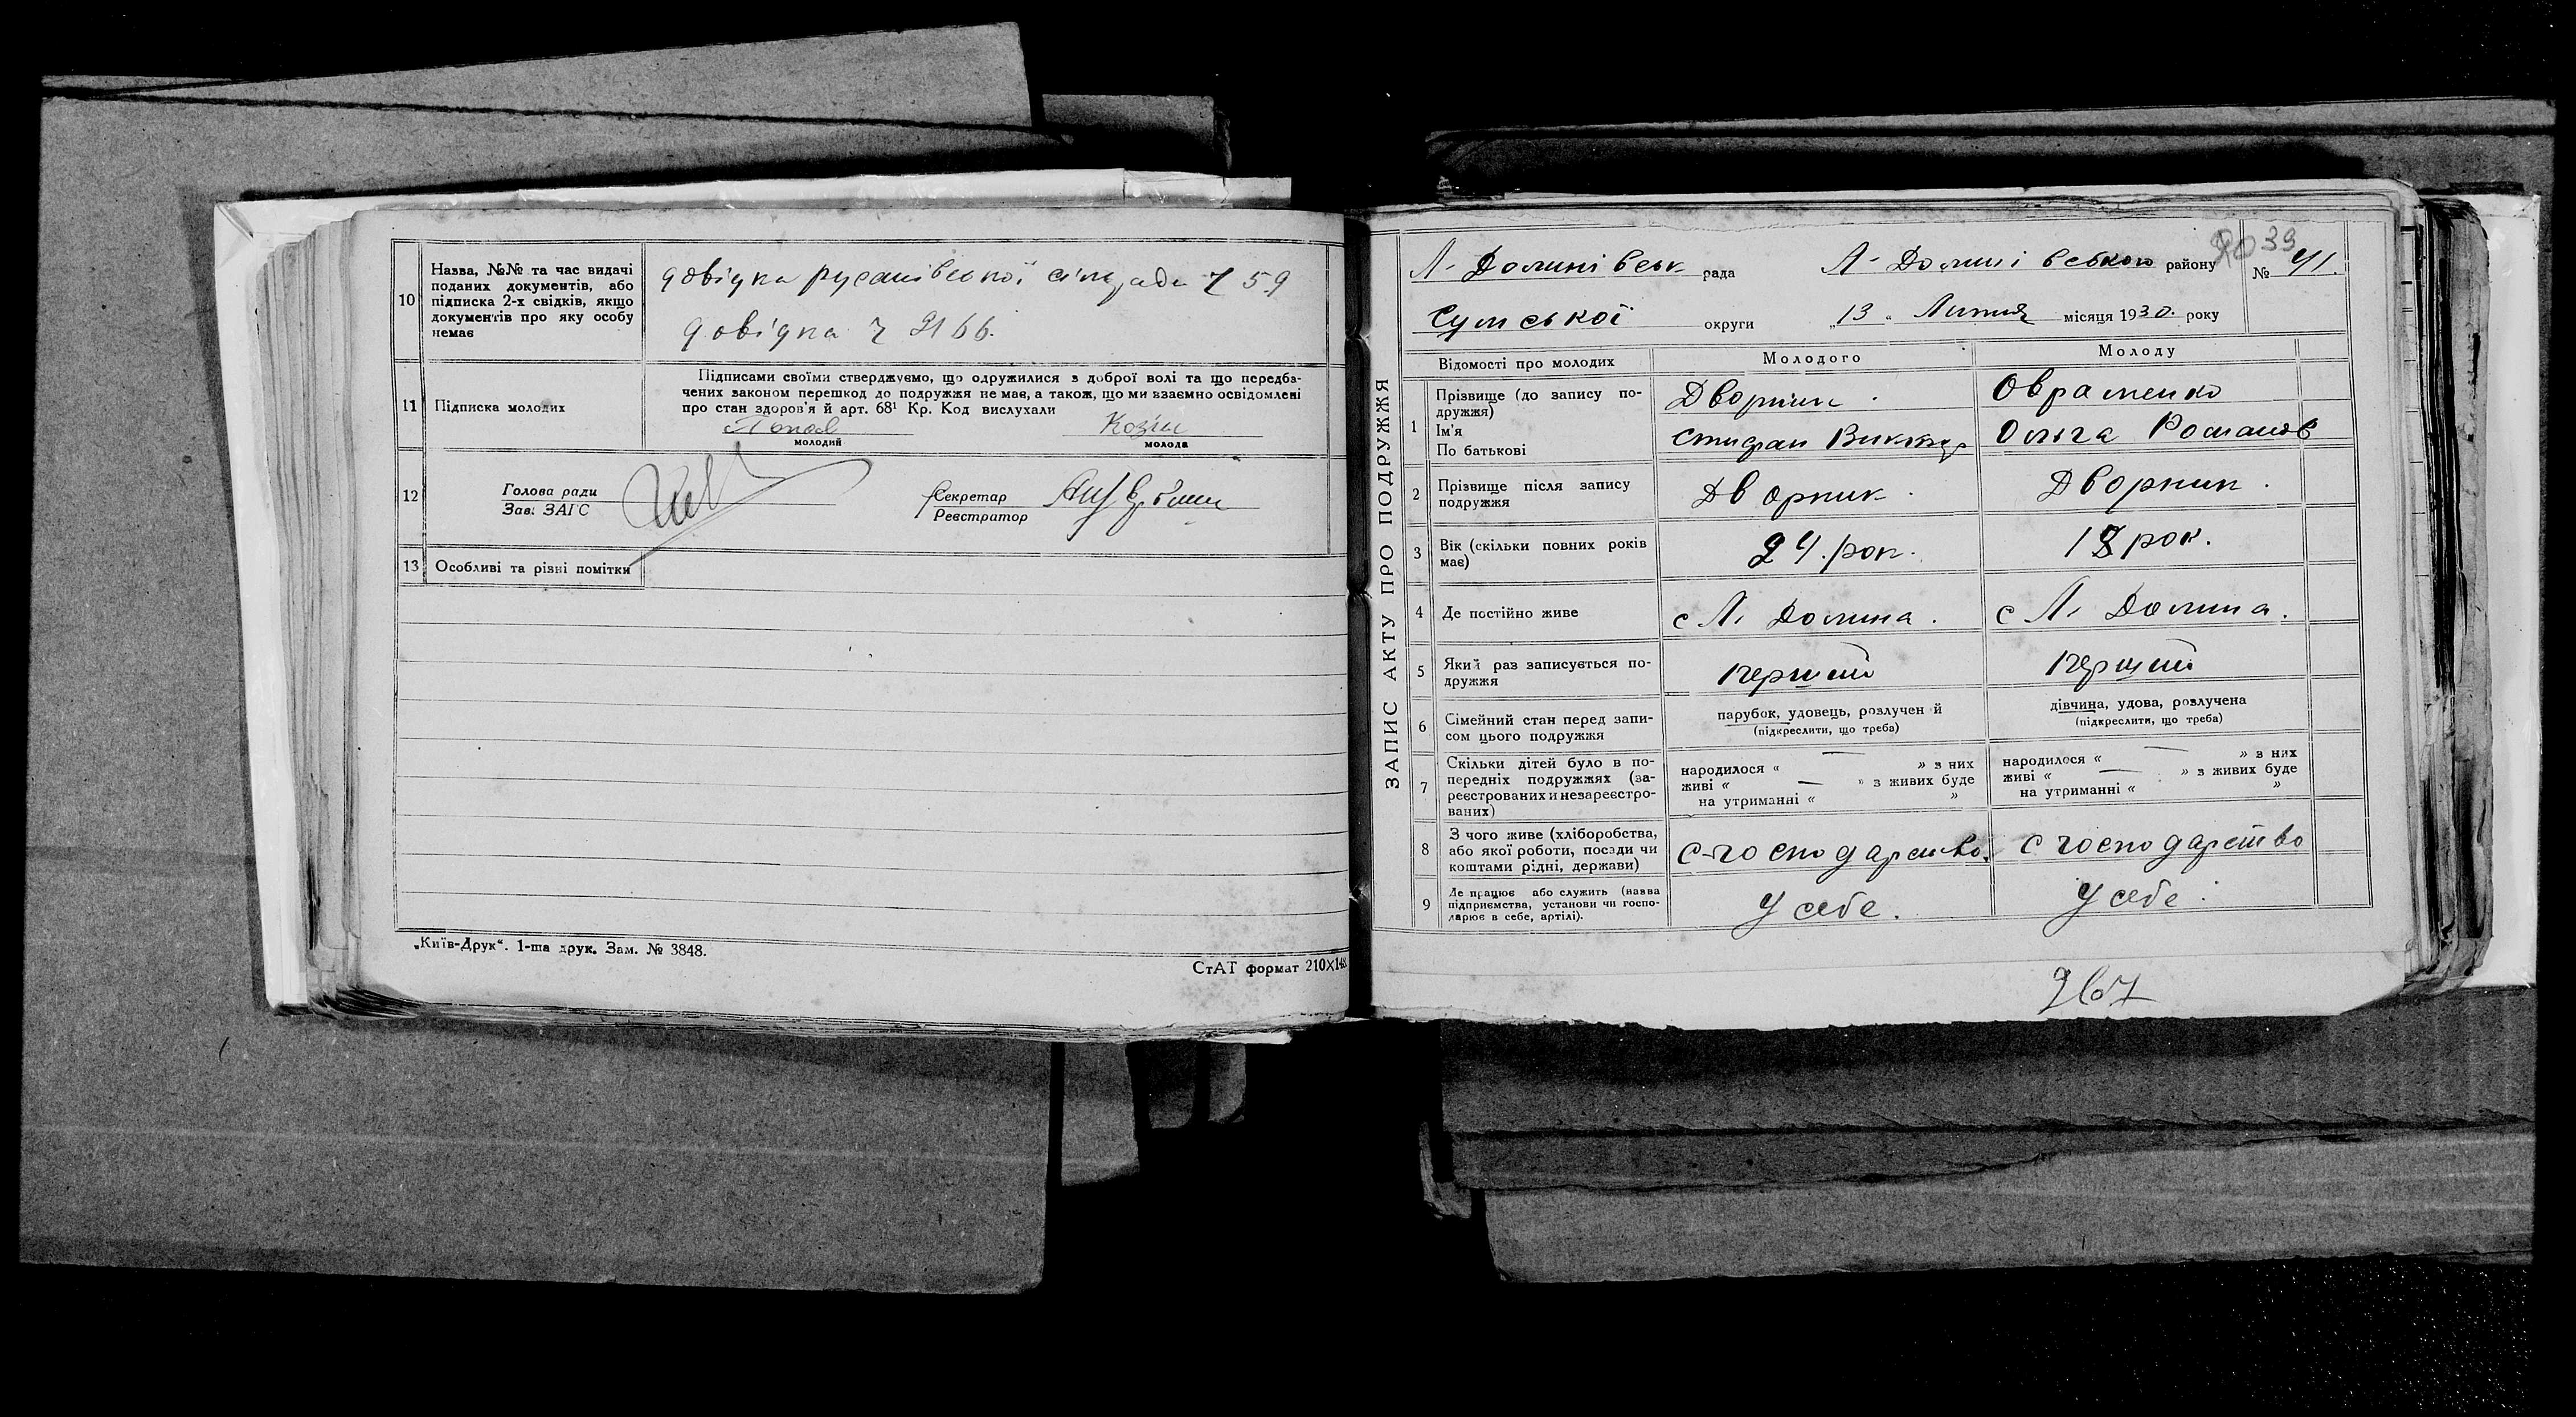 10
Назва, №№ та час видачі
поданих документів, або
підписка 2-х свідків, якщо
документів про яку особу
немає
довідка русанівської сільради Ч 59
довідка Ч 2166.
11
Підписка молодих
Підписами своїми стверджуємо, що одружилися з доброї волі та що передба-
чених законом перешкод до подружжя не має, а також, що ми взаємно освідомлені
про стан здоров'я й арт. 68¹ Кр. Код вислухали
молодий
молода
12
Голова ради
Зав. ЗАГС
Секретар
Реєстратор
13
Особливі та різні помітки
„Київ-Друк“. 1-ша друк. Зам. № 3848.
СтАТ формат 210X148
ЗАПИС АКТУ ПРО ПОДРУЖЖЯ
39
Л-Долинівськ рада Л-Долинівською району № 41.
Сумської округи „13„ Липня місяця 1930. року
Відомості про молодих
Молодого
Молоду
1
Прізвище (до запису по-
дружжя)
Ім'я
По батькові
Дворник
Стифан Виктор
Овраменко
Ольга Романов
2
Прізвище після запису
подружжя
Дворник
Дворник
3
Вік (скільки повних років
має)
24. рок.
18 рок.
4
Де постійно живе
с Л. Долина.
с Л. Долина.
5
Який раз записується по-
дружжя
перший
перший
6
Сімейний стан перед запи-
сом цього подружжя
парубок, удовець, розлучен й
(підкреслити, що треба)
дівчина, удова, розлучена
(підкреслити, що треба)
7
Скільки дітей було в по-
передніх подружжях (за-
реєстрованих и незареєстро-
ваних)
народилося “ — ” з них
живі “ — ” з живих буде
на утриманні “ ”
народилося “ — ” з них
живі “ — ” з живих буде
на утриманні “ ”
8
З чого живе (хліборобства,
або якої роботи, посади чи
коштами рідні, держави)
с-господарство.
с господарство
9
Де працює або служить (назва
підприємства, установи чи госпо-
дарює в себе, артілі).
у себе.
у себе.
267